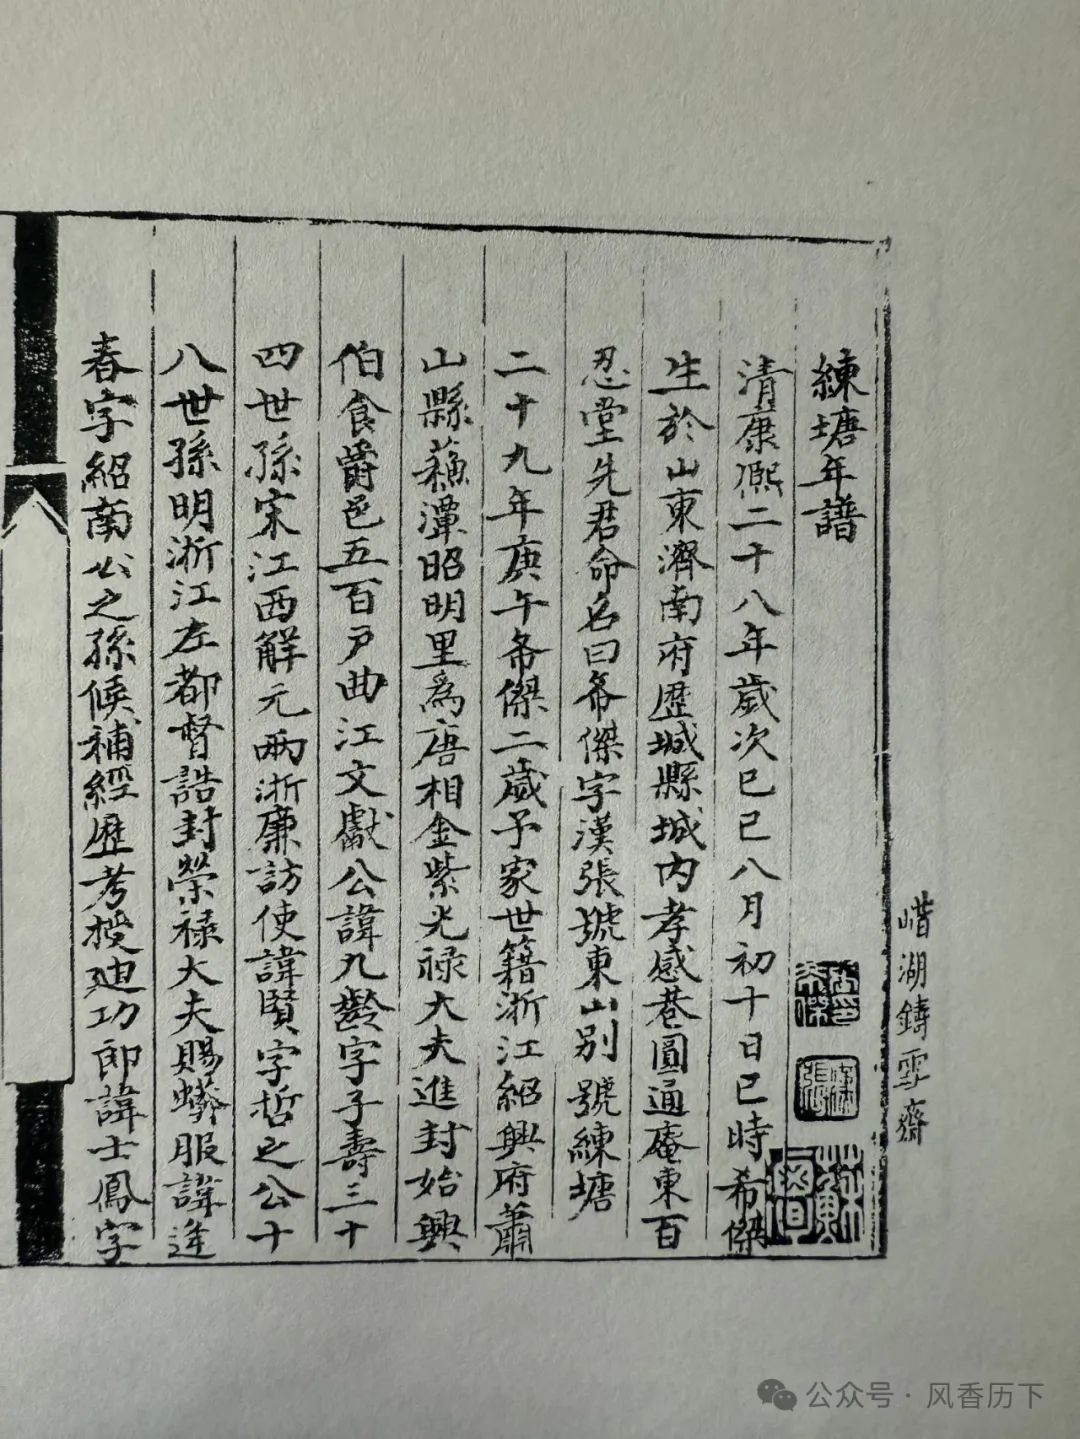 練塘年譜
清康熙二十八年歲次己巳八月初十日巳時希傑
生於山東濟南府歷城縣城内孝感巷圓通庵東百
忍堂先君命名曰希傑字漢張號東山别號練塘
二十九年庚午希傑二歲予家世籍浙江紹興府蕭
山縣蘓潭昭明里爲唐相金紫光禄大夫進封始興
伯食爵邑五百户曲江文獻公諱九齡字子壽三十
四世孫宋江西解元兩浙廉訪使諱賢字哲之公十
八世孫明浙江左都督誥封榮禄大夫賜蟒服諱逢
春字紹南公之孫候補經歷考授廸功郎諱士鳳字
嶖湖鑄雪齋
公众号·风香历下